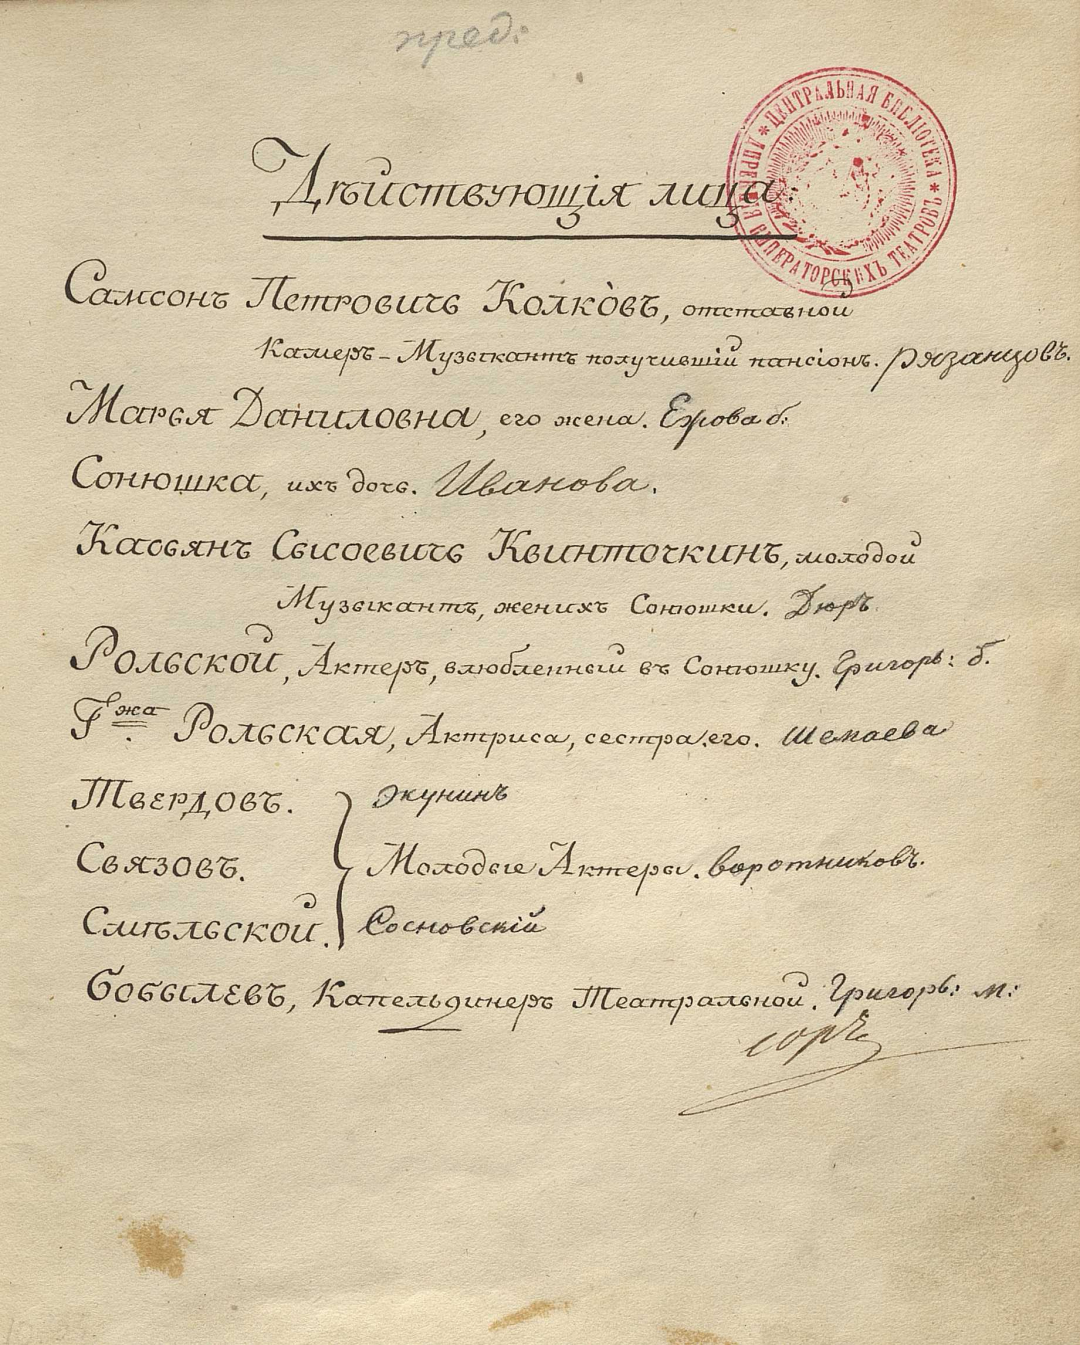 пред:
Дѣйствующія лица:
ЦЕНТРАЛЬНАЯ БИБЛІОТЕКА * ИМПЕРАТОРСКИХЪ ТЕАТРОВЪ *
Самсонъ Петровичь Колковъ, отставной
Камеръ-Музыкантъ получившій пансіонъ. Рязанцовъ.
Марья Даниловна, его жена. Ежова б:
Сонюшка, ихъ дочь. Иванова.
Касьянъ Сысоевичь Квинточкинъ, молодой
Музыкантъ, женихъ Сонюшки. Дюръ
Рольской, Актеръ, влюбленный въ Сонюшку. Григорь: б.
Гжа Рольская, Актриса, сестра его. Шемаева
Твердовъ. Экунинъ
Связовъ. Молодые Актеры. Воротниковъ.
Смѣльской. Сосновскій
Бобылевъ, Капельдинеръ Театральной. Григорь: м: